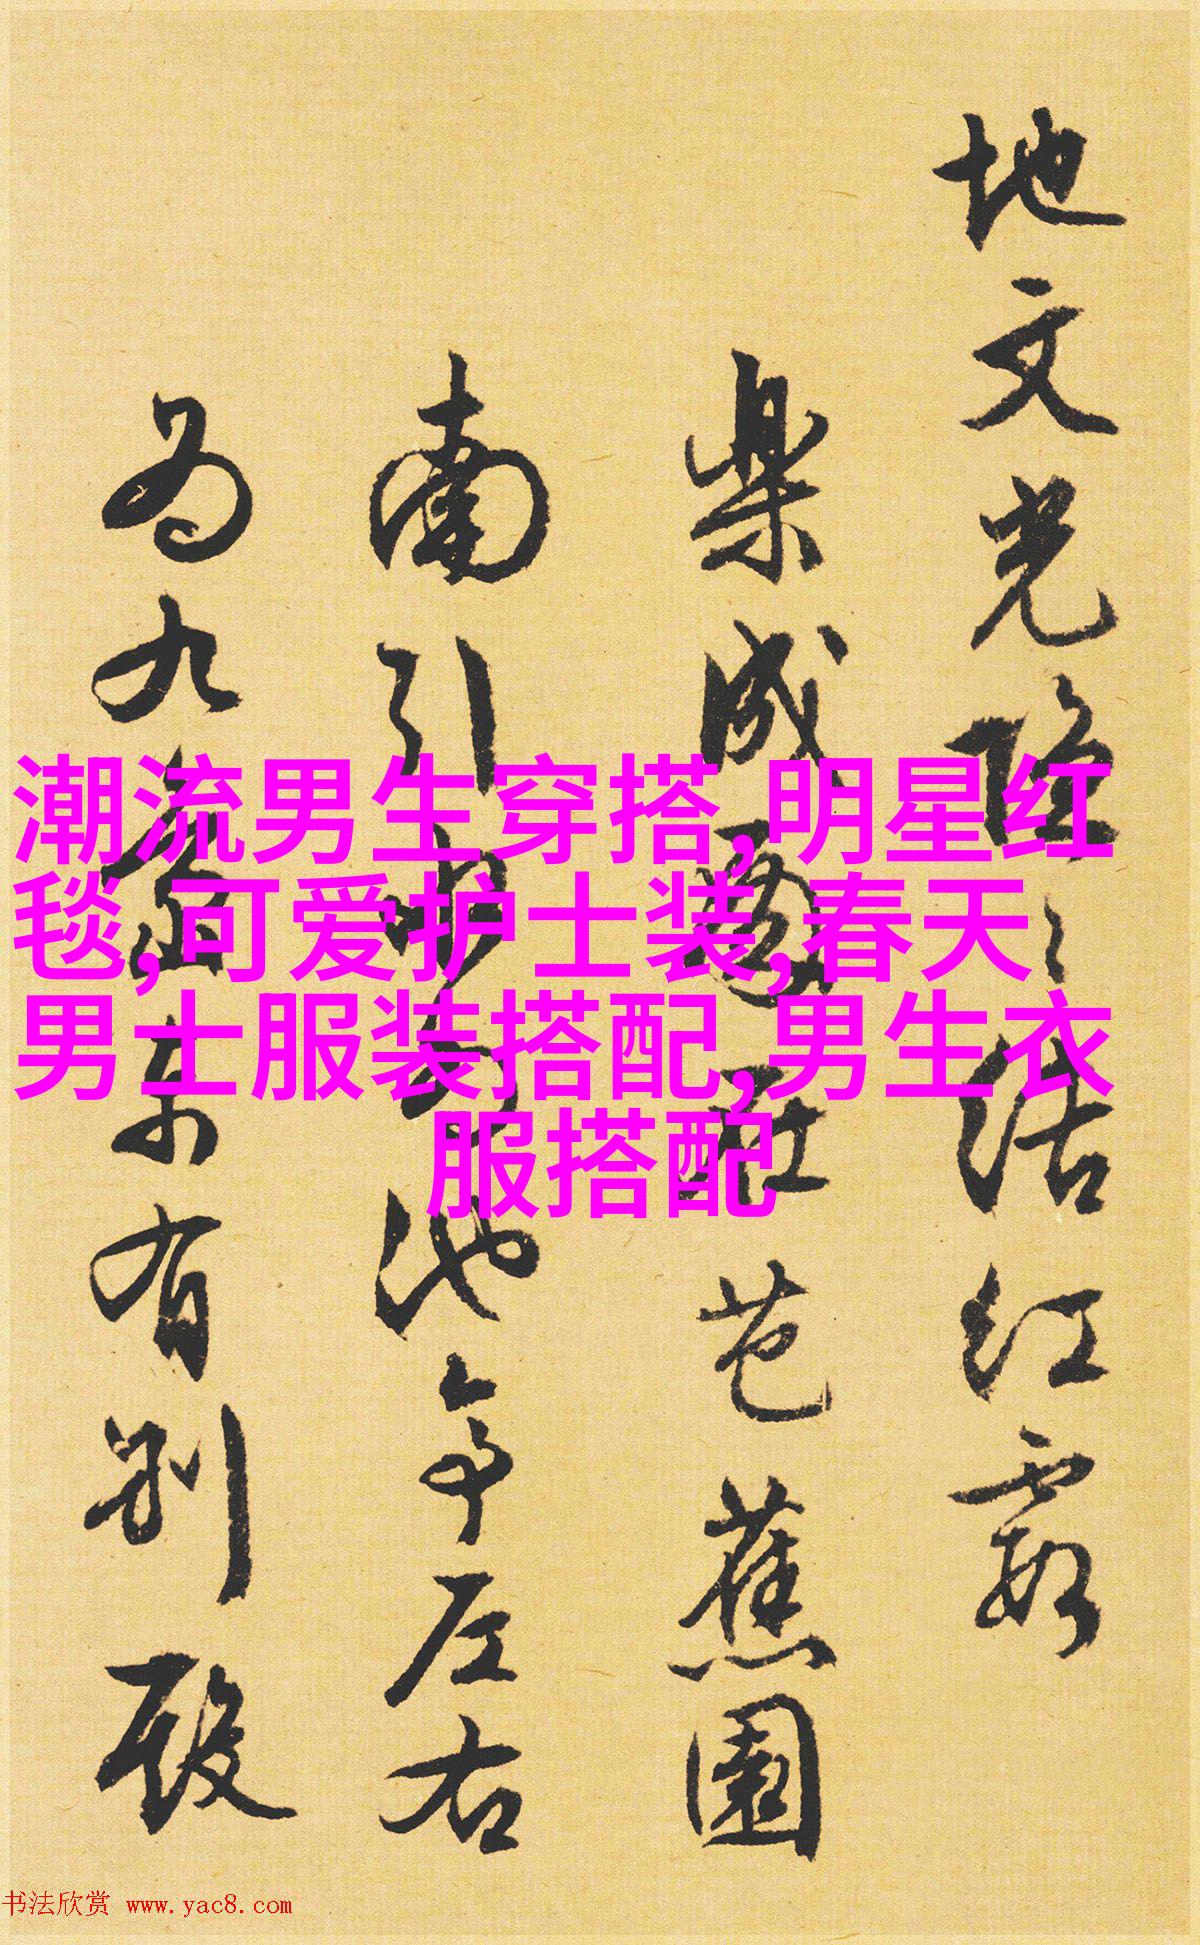 地文光陰之結红霞
樂成還在芭蕉園
南引水為池身左右
為九﻿齋未有别殿
潮流男生穿搭,明星红
毯,可爱护士装,春天
男士服装搭配,男生衣
服搭配
书法欣赏 www.yac8.com